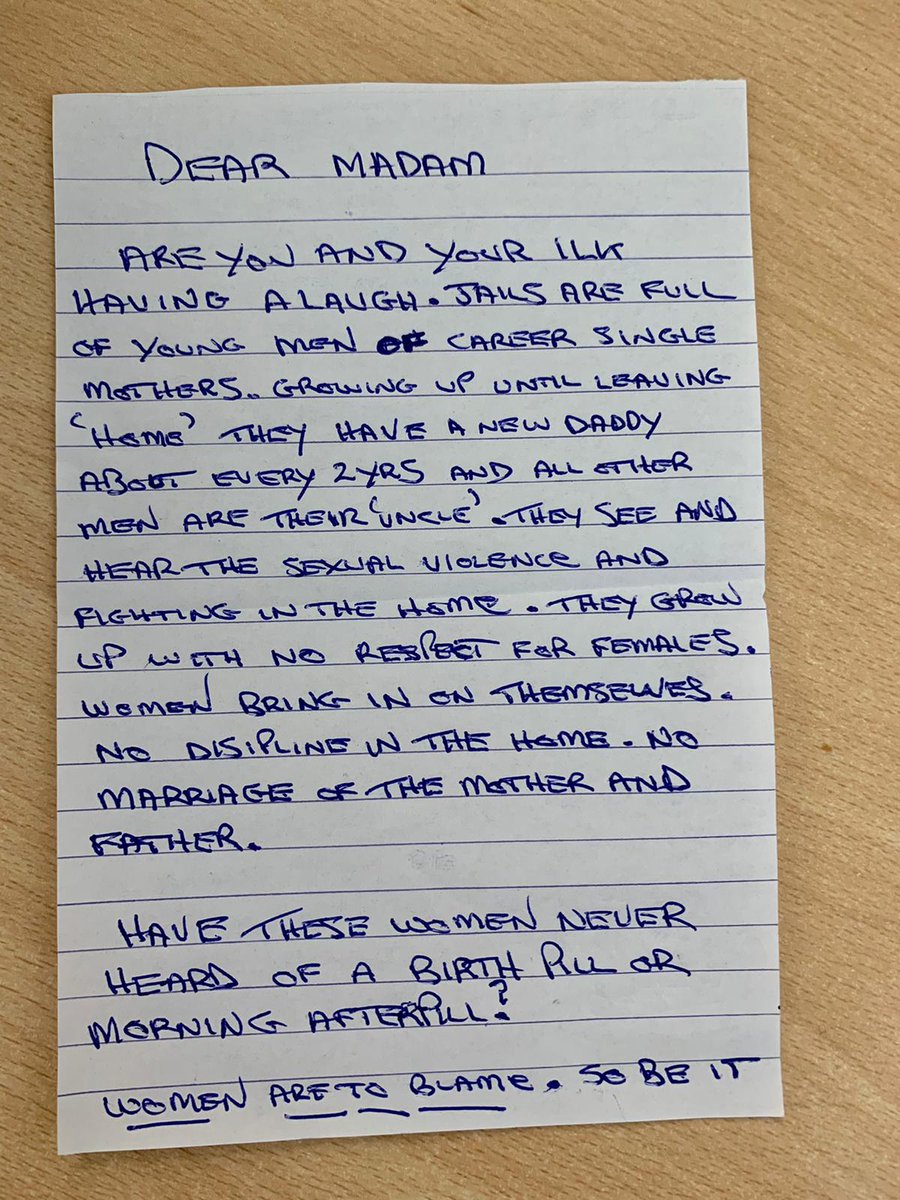 DEAR MADAM
ARE YOU AND YOUR ILK
HAVING A LAUGH. JAILS ARE FULL
OF YOUNG MEN OF CAREER SINGLE
MOTHERS.. GROWING UP UNTIL LEAVING
'HOME' THEY HAVE A NEW DADDY
ABOUT EVERY 2YRS AND ALL OTHER
MEN ARE THEIR 'UNCLE'. THEY SEE AND
HEAR THE SEXUAL VIOLENCE AND
FIGHTING IN THE HOME. THEY GROW
UP WITH NO RESPECT FOR FEMALES.
WOMEN BRING IN ON THEMSELVES.
NO DISIPLINE IN THE HOME. NO
MARRIAGE OF THE MOTHER AND
FATHER.
HAVE THESE WOMEN NEVER
HEARD OF A BIRTH PILL OR
MORNING AFTERPILL?
WOMEN ARE TO BLAME. SO BE IT